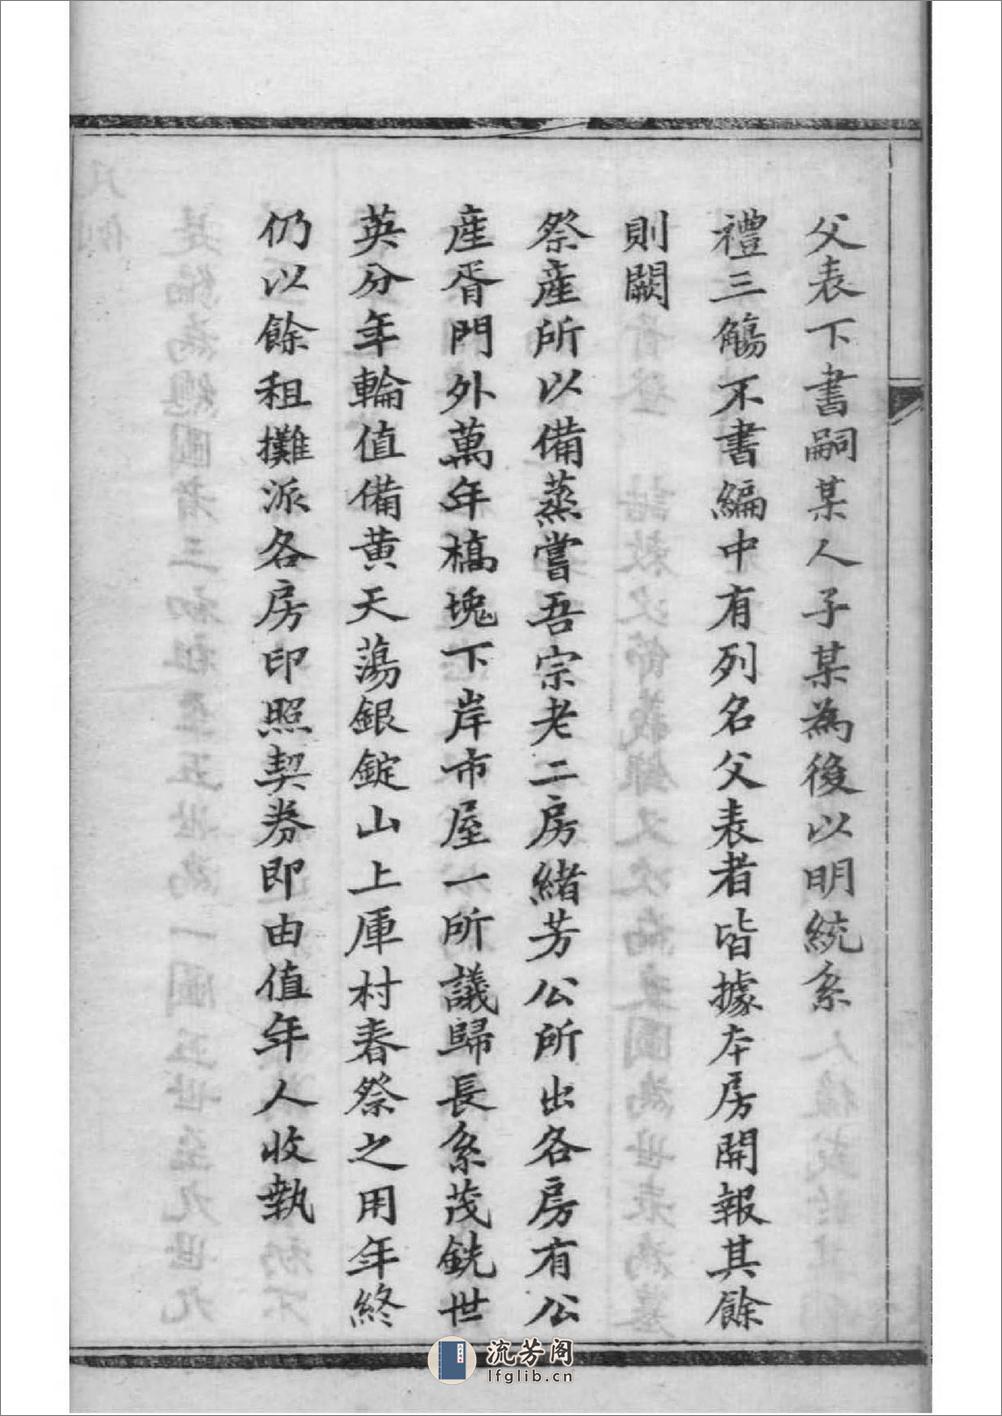 父表下書嗣某人子某為後以明統系
禮三觴不書編中有列名父表者皆據本房開報其餘
則闕
祭產所以備蒸嘗吾宗老二房緒芳公所出各房有公
產胥門外萬年橋堍下岸市屋一所議歸長系茂銑世
英分年輪值備黃天蕩銀錠山上庫村春祭之用年終
仍以餘租攤派各房印照契券即由值年人收執
流芳阁
lfglib.cn